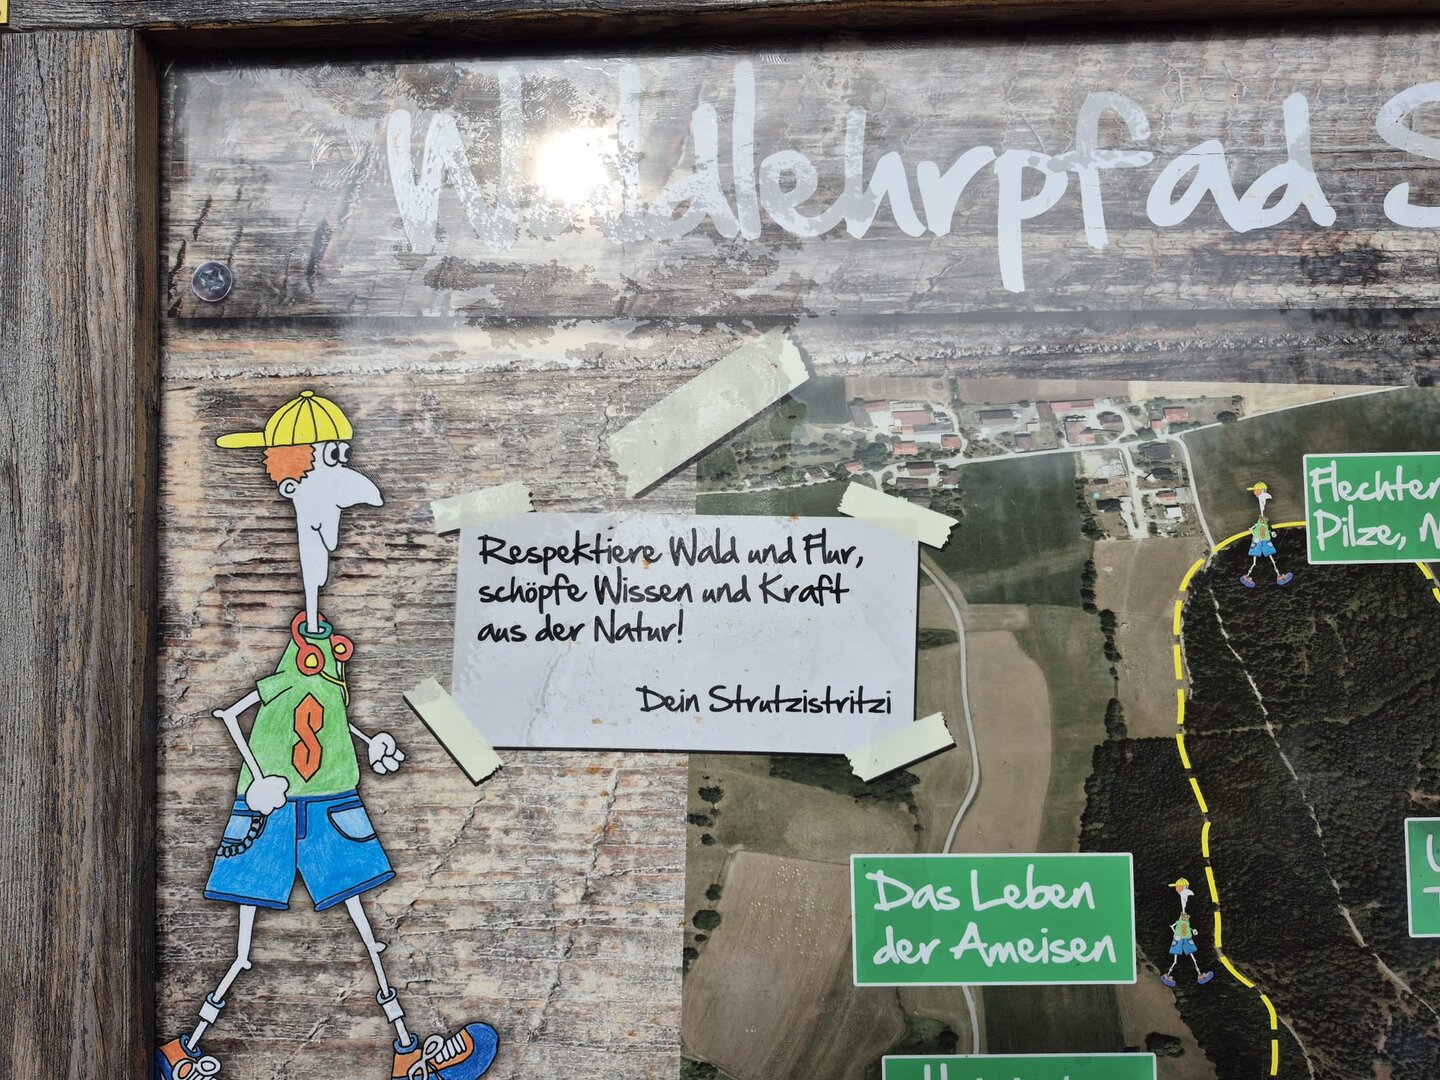 Waldlehrpfad
Respektiere Wald und Flur,
schöpfe Wissen und Kraft
aus der Natur!
Dein Strutzistritzi
S
Pilze,
Das Leben
der Ameisen